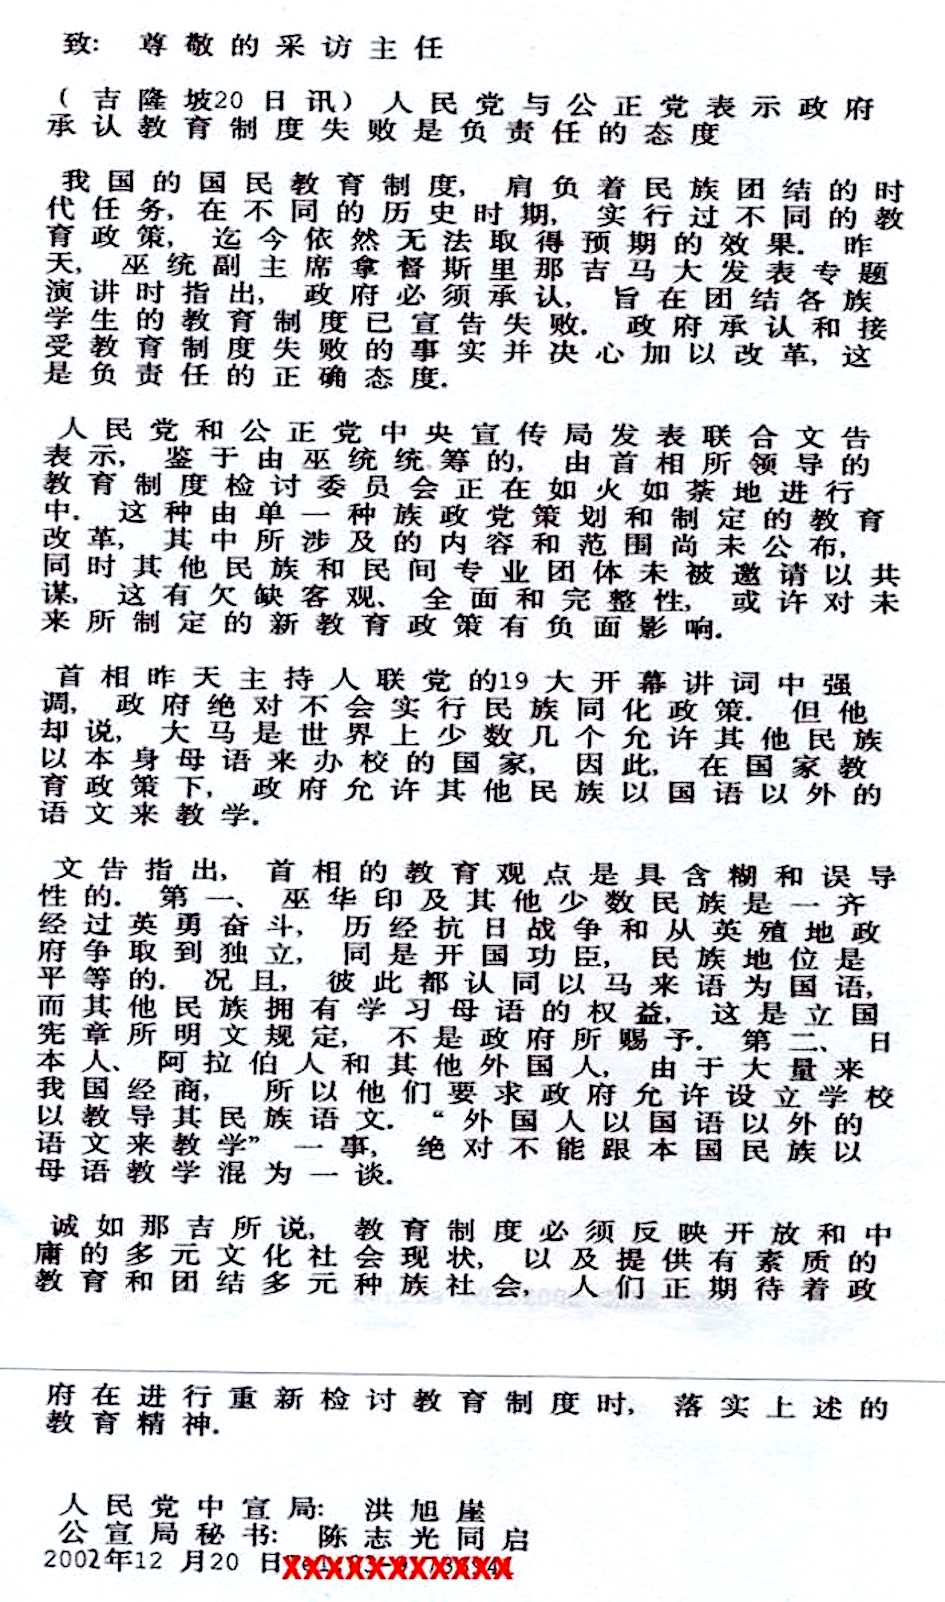 致: 尊敬的采访主任
(吉隆坡20日讯) 人民党与公正党表示政府
承认教育制度失败是负责任的态度
我国的国民教育制度, 肩负着民族团结的时
代任务, 在不同的历史时期, 实行过不同的教
育政策, 迄今依然无法取得预期的效果. 昨
天, 巫统副主席拿督斯里那吉马大发表专题
演讲时指出, 政府必须承认, 旨在团结各族
学生的教育制度已宣告失败. 政府承认和接
受教育制度失败的事实并决心加以改革, 这
是负责任的正确态度.
人民党和公正党中央宣传局发表联合文告
表示, 鉴于由巫统统筹的, 由首相所领导的
教育制度检讨委员会正在如火如荼地进行
中. 这种由单一种族政党策划和制定的教育
改革, 其中所涉及的内容和范围尚未公布,
同时其他民族和民间专业团体未被邀请以共
谋, 这有欠缺客观、全面和完整性, 或许对未
来所制定的新教育政策有负面影响.
首相昨天主持人联党的19大开幕讲词中强
调, 政府绝对不会实行民族同化政策. 但他
却说, 大马是世界上少数几个允许其他民族
以本身母语来办校的国家, 因此, 在国家教
育政策下, 政府允许其他民族以国语以外的
语文来教学.
文告指出, 首相的教育观点是具含糊和误导
性的. 第一、巫华印及其他少数民族是一齐
经过英勇奋斗, 历经抗日战争和从英殖地政
府争取到独立, 同是开国功臣, 民族地位是
平等的. 况且, 彼此都认同以马来语为国语,
而其他民族拥有学习母语的权益, 这是立国
宪章所明文规定, 不是政府所赐予. 第二、日
本人、阿拉伯人和其他外国人, 由于大量来
我国经商, 所以他们要求政府允许设立学校
以教导其民族语文. “外国人以国语以外的
语文来教学” 一事, 绝对不能跟本国民族以
母语教学混为一谈.
诚如那吉所说, 教育制度必须反映开放和中
庸的多元文化社会现状, 以及提供有素质的
教育和团结多元种族社会, 人们正期待着政
府在进行重新检讨教育制度时, 落实上述的
教育精神.
人民党中宣局: 洪旭崖
公宣局秘书: 陈志光同启
2002年12月20日